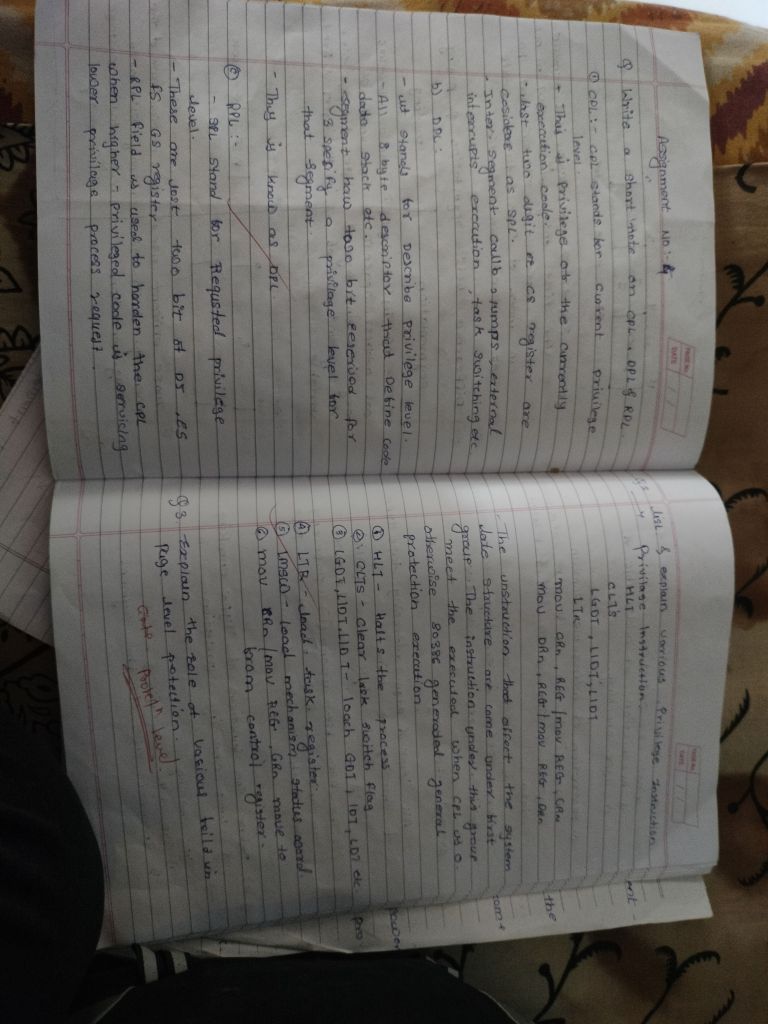 Assignment No:- 4
PAGE No.
DATE
Q Write a short note on CPL, DPL & RPL
① CPL:- CPL stands for Current privilege
level
- This is privilege of the currently
execution code.
- last two digit of CS register are
cosiders as SPL.
- Inter segment callb, jumps, external
interrupts execution, task switching etc
b) DPL:
- it stands for Describe privilege level.
- All 8 byte descriptor that Define code
data stack etc.
- segment how two bit reserved for
3 specify a privilege level for
that segment.
- This is know as DPL
© RPL:-
- SPL stand for Requsted privilege
level.
- These are lost two bit of DS, ES
FS GS register
- RPL field is used to harden the CPL
when higher - privileged code is servicing
lower privilage process request.
PAGE No.
DATE
list & explain various Privilege Instruction
→ Privilage Instruction
HLT
CLTs
LGDT, LIDT, LIDT
LTR
MOV CRn, REG / mov REG, CRn
MOV DRn, REG / mov REG, DRn
- The instruction that affect the system
date structure are come under first
group. The instruction under this group
meet the executed when CPL is 0
otherwise 80386 generaded general
protection execution
① HLT - Halts the process
② CLTS - Clear task switch flag
③ LGDT, LIDT, LIDT - loach GDT, IDT, LDT etc
④ LTR - load task register
⑤ LMSW - load mechanism status word
⑥ mov CRn / mov REG, CRn move to
from control register.
Q3 Explain the role of various build in
page level protection.
Gate Protein level
ent -
the
com+
power
pro